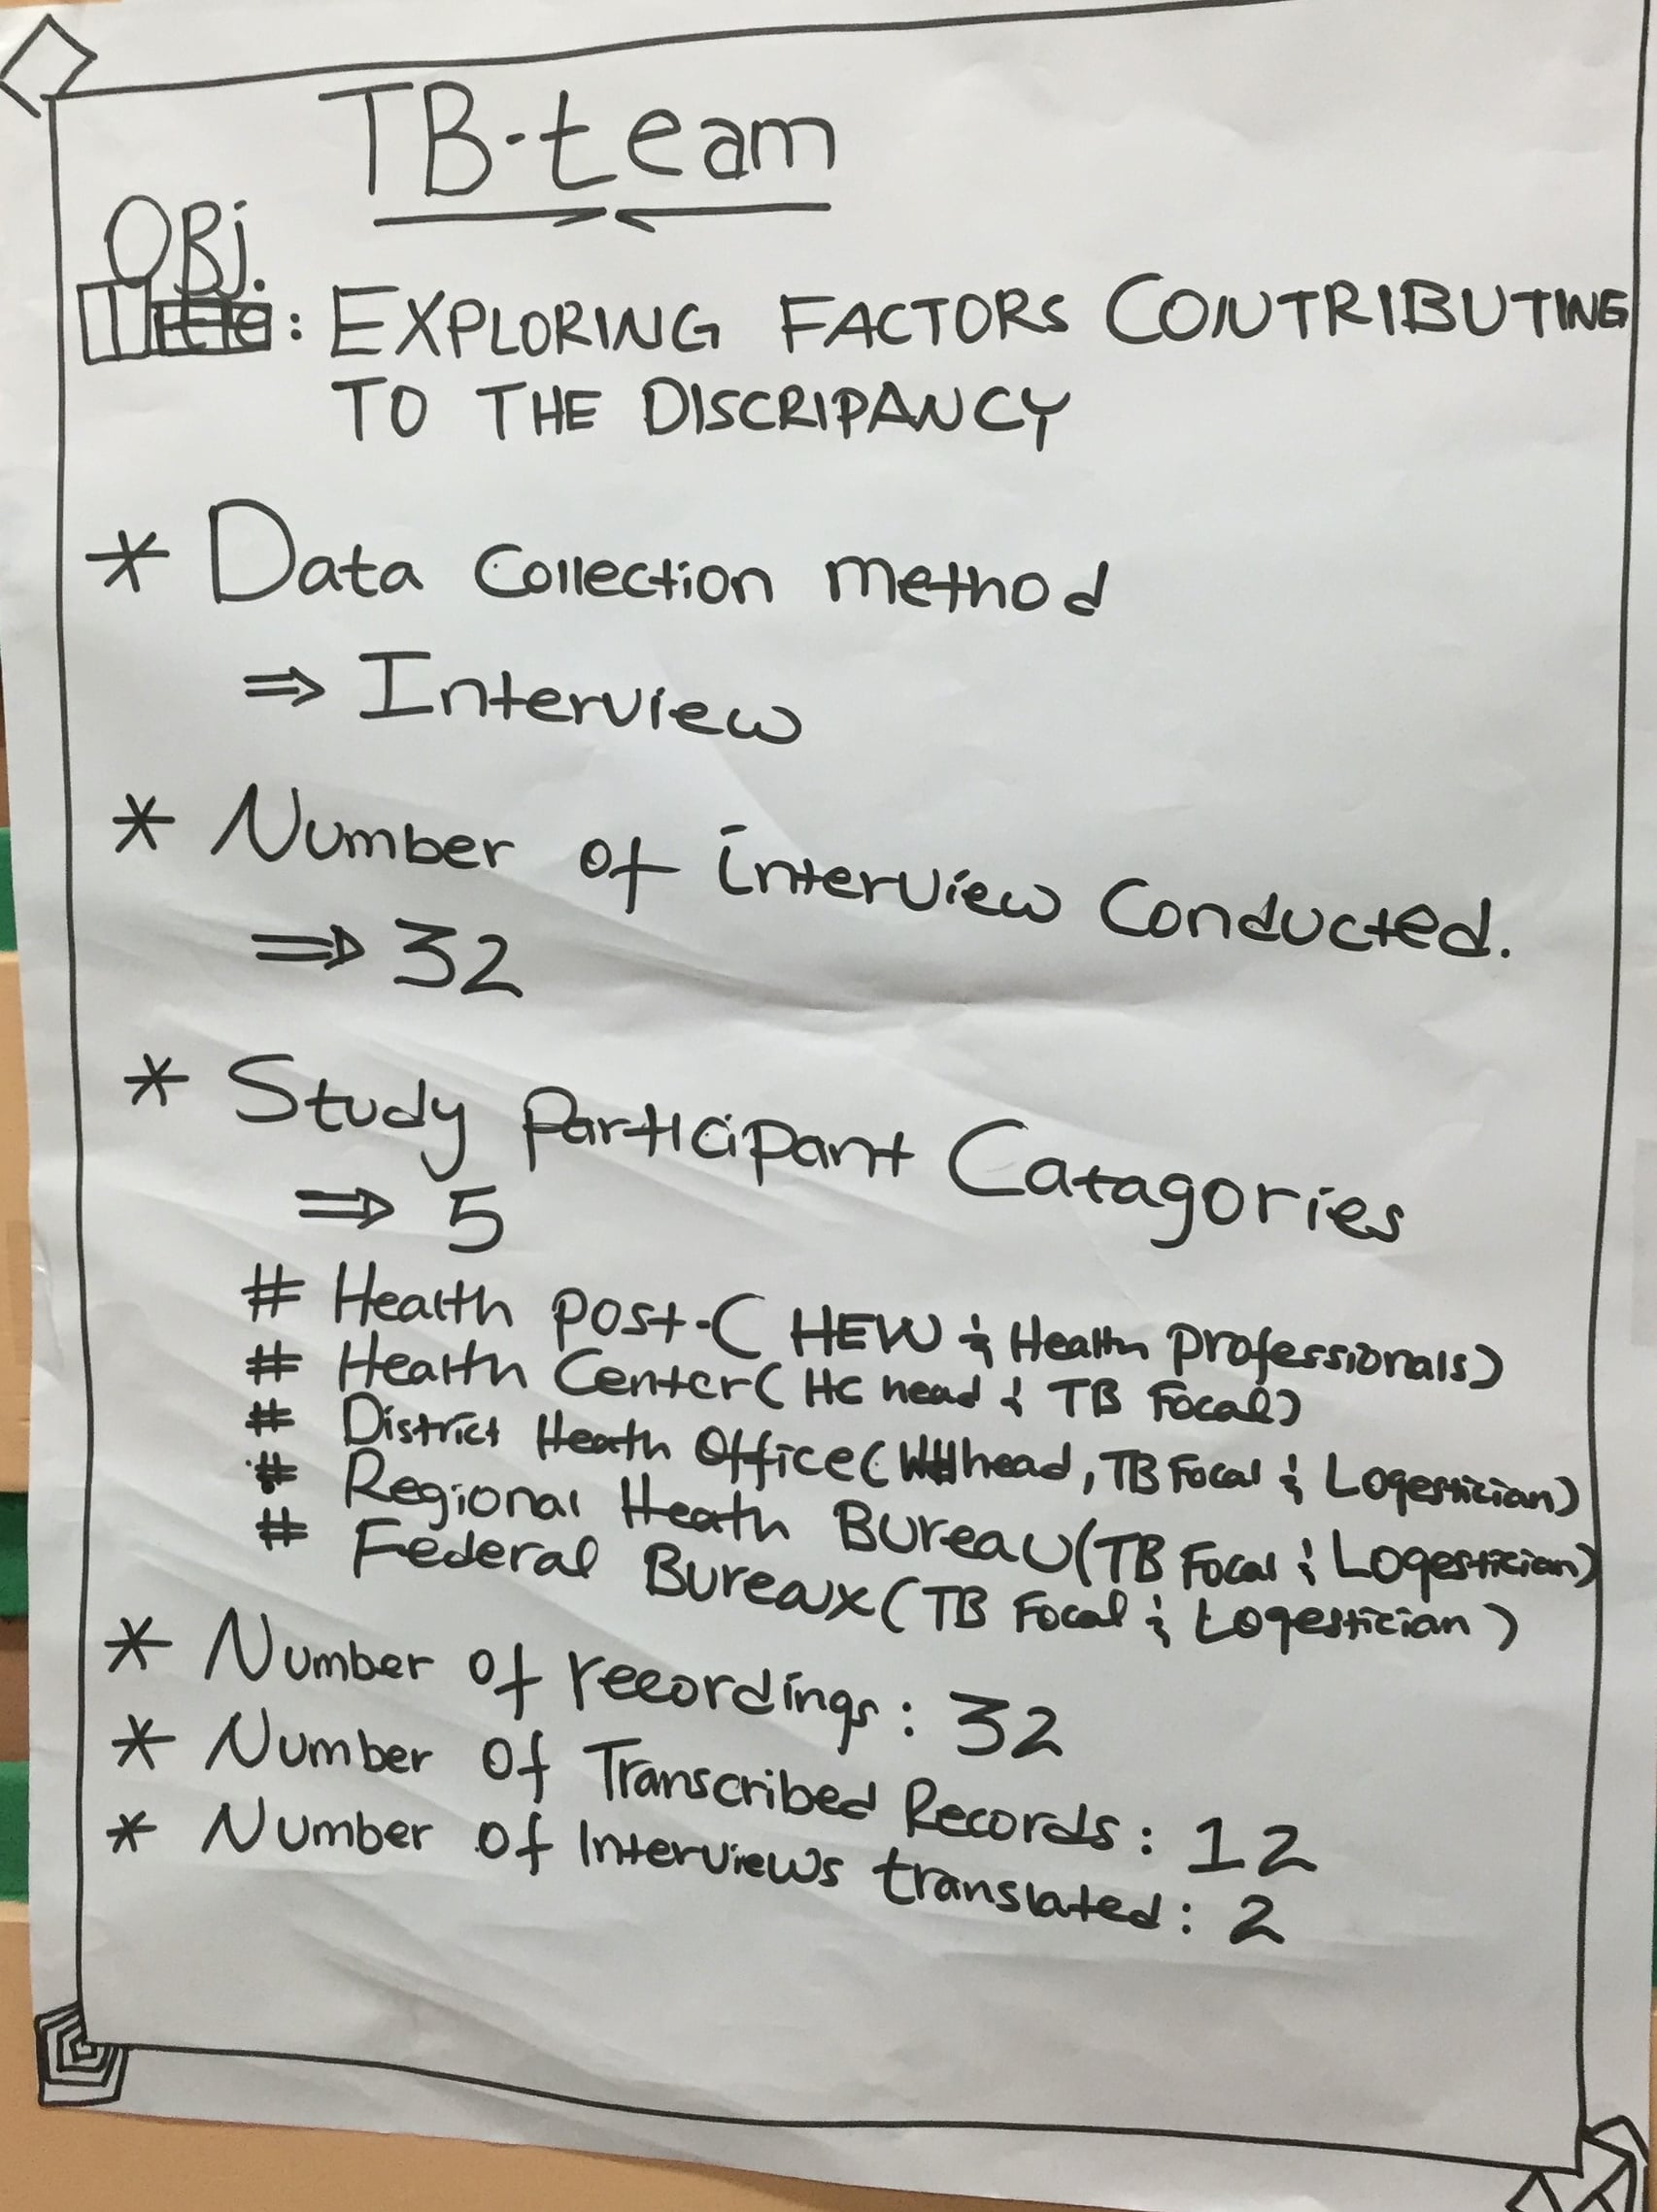 TB-team
OBj.
: EXPLORING FACTORS CONTRIBUTING
TO THE DISCRIPANCY
* Data Collection method
⇒ Interview
* Number of interview Conducted.
⇒ 32
* Study Participant Catagories
⇒ 5
# Health post-( HEW & Health professionals)
# Health Center( HC head & TB Focal)
# District Heath Office( head, TB Focal & Logestician)
# Regional Heath Bureau(TB Focal & Logestician)
# Federal Bureaux(TB Focal & Logestician)
* Number of recordings: 32
* Number of Transcribed Records: 12
* Number of Interviews translated: 2